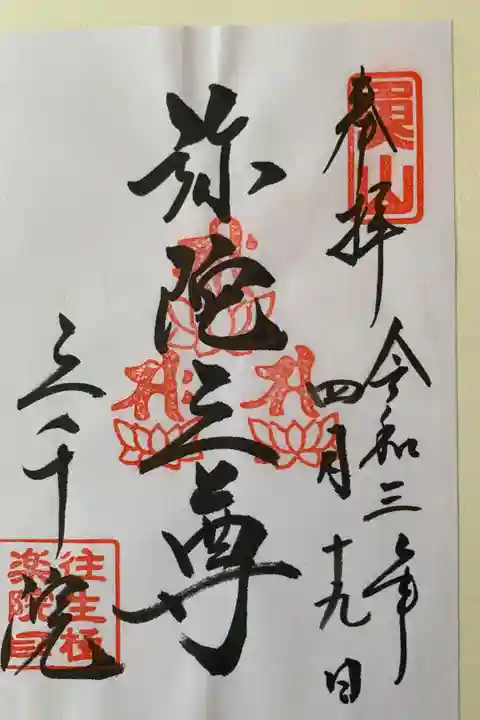 奉拝
令和三年
四月十九日
弥陀三尊
三千院
往生極
楽院